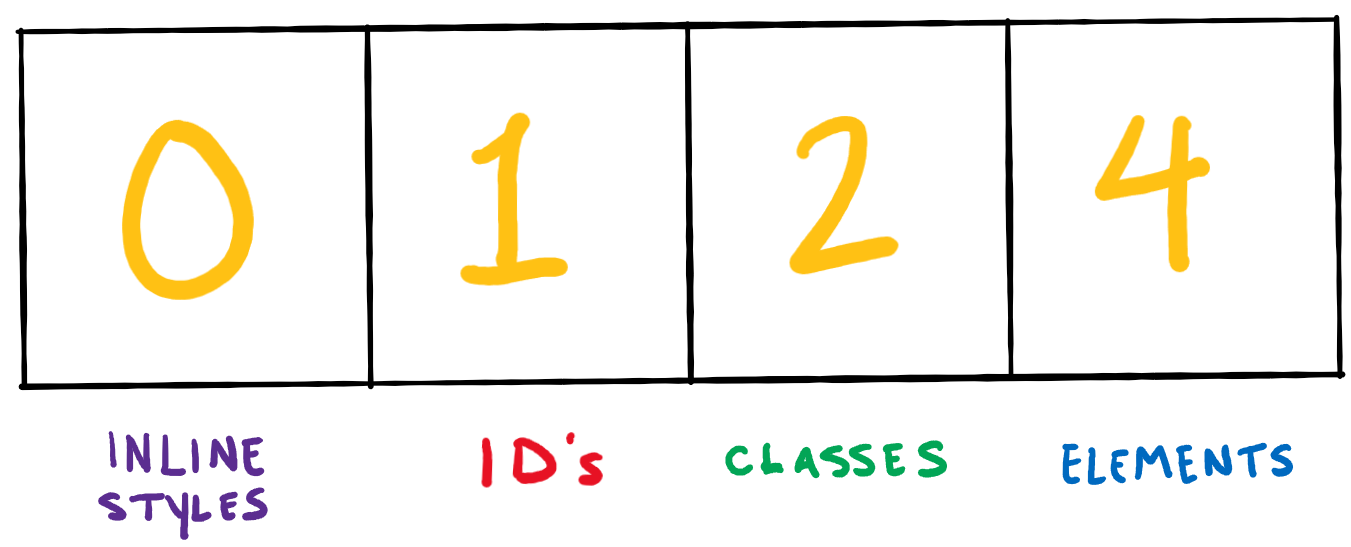 0 1 2 4
INLINE STYLES ID's CLASSES ELEMENTS